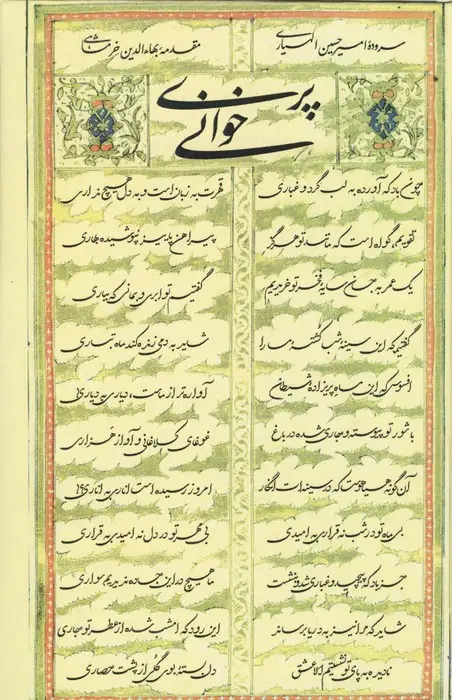 سرودهٔ امیرحسین الهیاری
مقدمهٔ بهاءالدین خرمشاهی
پری خوانی
چون باد که آورده به لب گرد و غباری
قهرت به زبان است و به دل هیچ نداری
تقویم، گواه است که مانند تو هرگز
پیراهن پاییز نپوشیده بهاری
یک عمر به جان سایهٔ تو خریدیم
گفتیم تو ابری و بمانی که بباری
گفتیم که این سینهٔ شب کشتهٔ ما را
شاید به دمی زنده کند ماه تباری
افسوس که این ماه پریزادهٔ شیطان
آواره‌تر از ماست، دیاری به دیاری!
با شور تو پیوسته و جاری شده در باغ
غوغای کلاغانی و آواز هزاری
آن گونه هیاهوست که در سینه‌ات انگار
امروز رسیده است اناری به اناری؟!
بی ماه تو در شب نه قراری به امیدی
بی مهر تو در دل نه امیدی به قراری
جز باد که پیچید و غباری شد و ننشست
ما هیچ در این جاده ندیدیم سواری
شاید که مرا نیز به دریا برساند
این رود که امشب شده از عطر تو جاری
نادیده به پای تو نشستیم الا عشق
دل بسته به بوی گلی از پشت حصاری